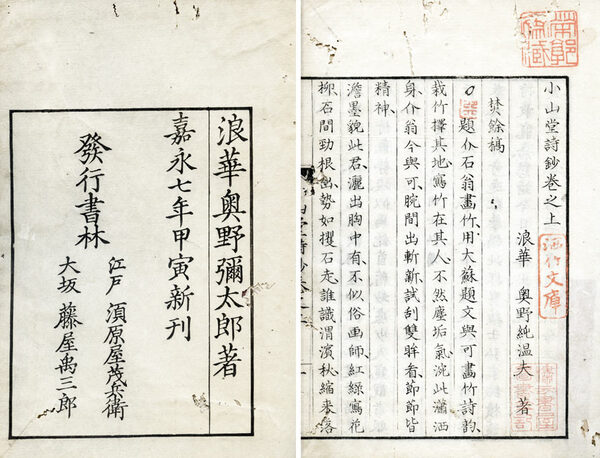 小山堂詩鈔卷之上
浪華 奥野純温夫 著
焚餘稿
題介石翁畫竹用大蘇題文與可畫竹詩韵
栽竹擇其地寫竹在其人不然塵垢氣浣此瀟洒
身介翁今與可腕間出斬新試刮雙眸看節節皆
精神
澹墨貌此君灑出胸中有不似俗画師紅綠寫花
柳石間勁根出勢如攫石走誰識渭濱秋縮来落
酒竹文庫
浪華奥野彌太郎著
嘉永七年甲寅新刊
發行書林
江戸 須原屋茂兵衛
大坂 藤屋禹三郎